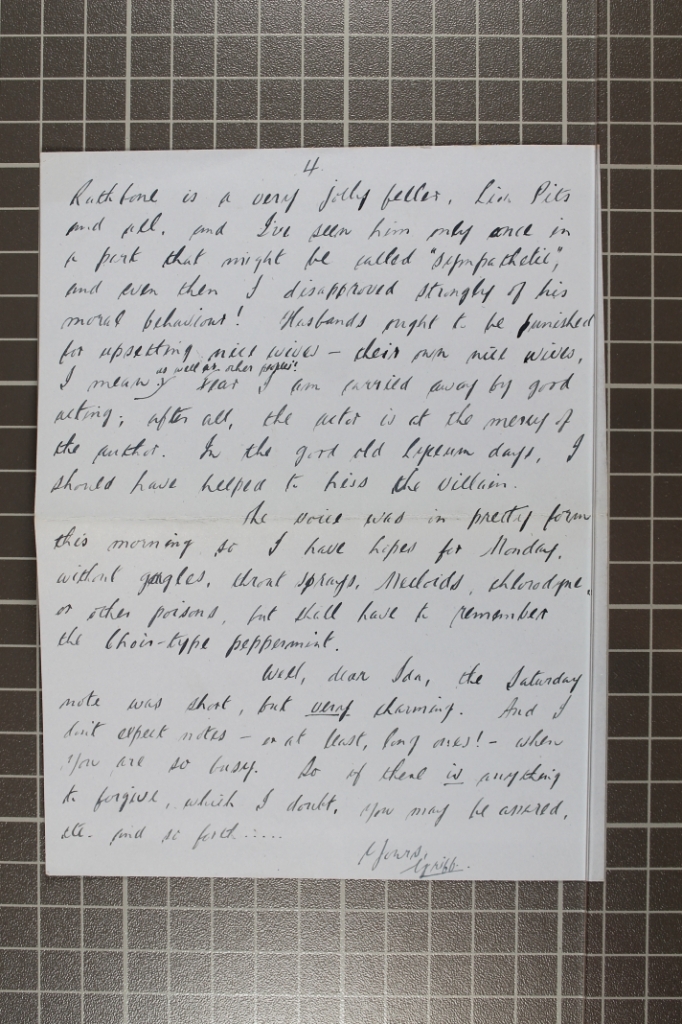 4.
Rathbone is a very jolly feller, Lion Pits
and all, and I've seen him only once in
a part that might be called "sympathetic",
and even then I disapproved strongly of his
moral behaviour! Husbands ought to be punished
for upsetting nice wives – their own nice wives,
as well as other people's!
I mean. I am carried away by good
acting; after all, the actor is at the mercy of
the author. In the good old Lyceum days, I
should have helped to hiss the villain.
The voice was in pretty form
this morning so I have hopes for Monday,
without gargles, throat sprays, Meloids, chlorodyne,
or other poisons, but shall have to remember
the Choir-type peppermint.
Well, dear Ida, the Saturday
note was short, but very charming. And I
don't expect notes – or at least, long ones! – when
you are so busy. So if there is anything
to forgive, which I doubt, you may be assured,
etc. and so forth.....
Yours,
Griff.